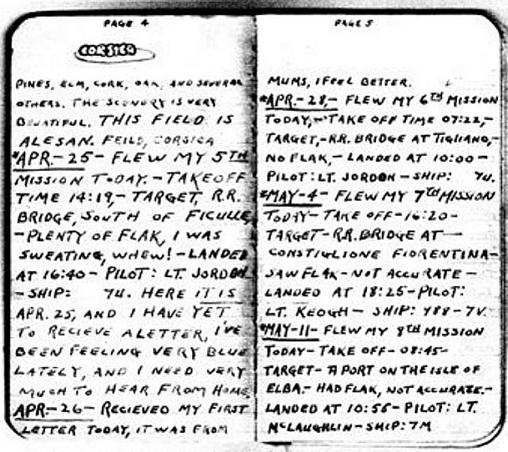 PAGE 4
CORSICA
PINES, ELM, CORK, OAK, AND SEVERAL
OTHERS. THE SCENERY IS VERY
BEUATIFUL. THIS FIELD IS
ALESAN. FEILD, CORSICA
*APR.-25- FLEW MY 5TH
MISSION TODAY.-TAKEOFF
TIME 14:19,- TARGET, R.R.
BRIDGE, SOUTH OF FICULLE,
-PLENTY OF FLAK, I WAS
SWEATING, WHEW!-LANDED
AT 16:40- PILOT: LT. JORDON
-SHIP: 7U. HERE IT IS
APR. 25, AND I HAVE YET
TO RECIEVE A LETTER, I'VE
BEEN FEELING VERY BLUE
LATELY, AND I NEED VERY
MUCH TO HEAR FROM HOME
APR.-26- RECIEVED MY FIRST
LETTER TODAY, IT WAS FROM
PAGE 5
MUMS, I FEEL BETTER.
*APR.-28,- FLEW MY 6TH MISSION
TODAY,-TAKE OFF TIME 07:22,-
TARGET,-R.R. BRIDGE AT TIGLIANO,-
NO FLAK,- LANDED AT 10:00-
PILOT: LT. JORDON-SHIP: 7U.
*MAY-4- FLEW MY 7TH MISSION
TODAY- TAKE OFF-16:20-
TARGET-R.R. BRIDGE AT-
CONSTIGLIONE FIORENTINA-
SAW FLAK-NOT ACCURATE-
LANDED AT 18:25-PILOT:
LT. KEOGH- SHIP: 488-7V.
*MAY-11- FLEW MY 8TH MISSION
TODAY-TAKE OFF-08:45-
TARGET- A PORT ON THE ISLE OF
ELBA.- HAD FLAK, NOT ACCURATE.-
LANDED AT 10:55-PILOT: LT.
McLAUGHLIN-SHIP: 7M